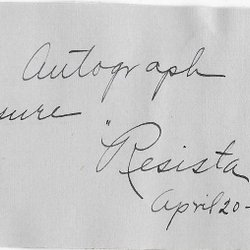 Autograph
sure
"Resista
April 20-